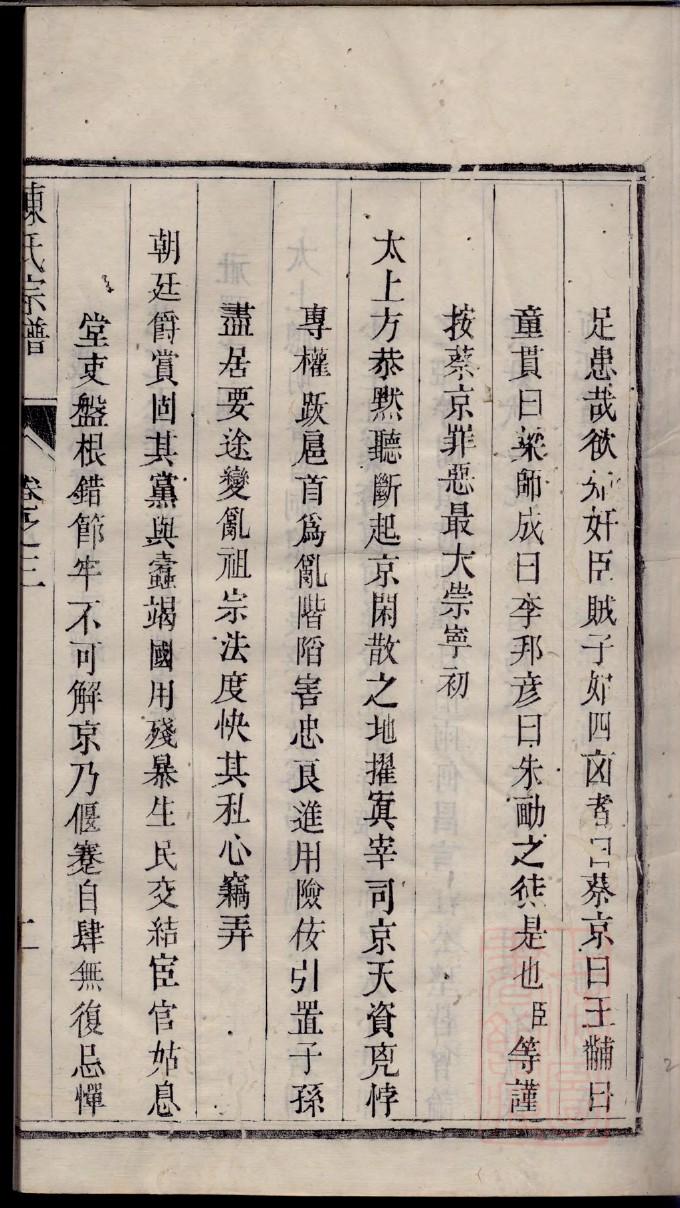 足患哉欲知奸臣賊子如四凶者曰蔡京曰王黼曰
童貫曰梁師成曰李邦彥曰朱勔之徒是也臣等謹
按蔡京罪惡最大崇寧初
太上方恭黙聽斷起京閑散之地擢寘宰司京天資兇悖
專權跋扈首爲亂階陷害忠良進用險佞引置子孫
盡居要途變亂祖宗法度快其私心竊弄
朝廷爵賞固其黨與蠹竭國用殘暴生民交結宦官姑息
堂吏盤根錯節牢不可解京乃偃蹇自肆無復忌憚
陳氏宗譜
卷之三
二